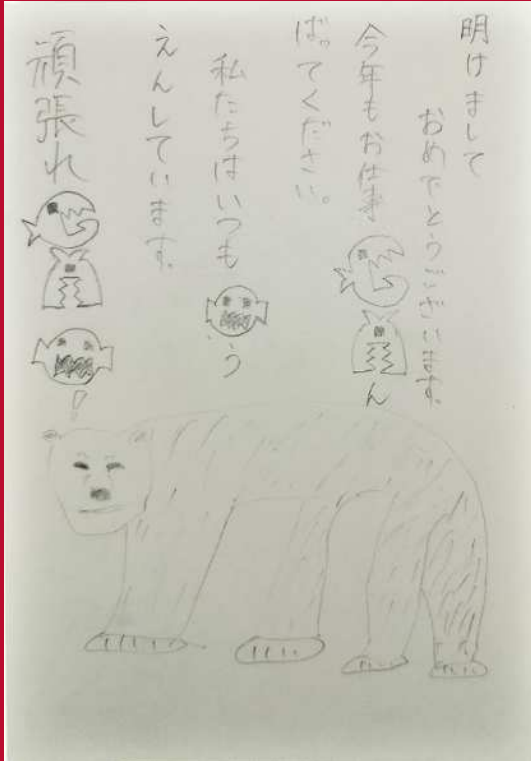 明けまして
おめでとうございます。
今年もお仕事ん
ばってください。
私たちはいつもう
えんしています。
頑張れ!